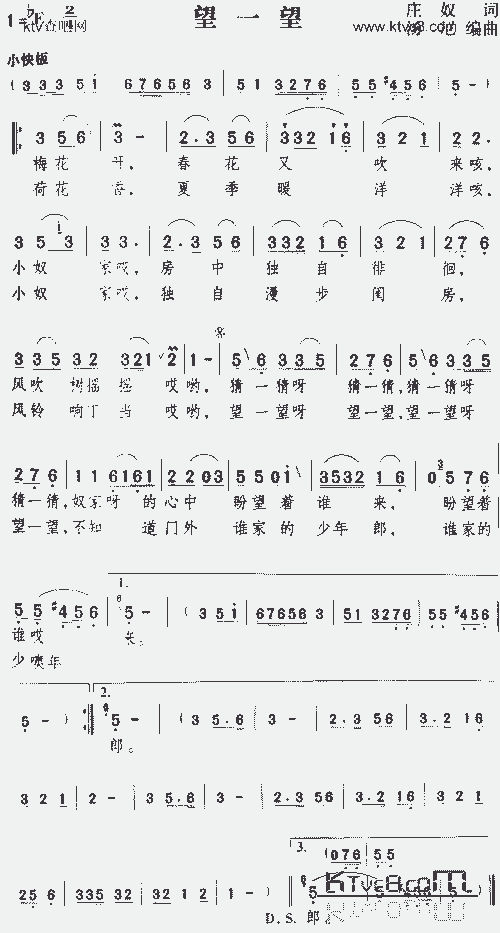 望一望
1=♭E 2/4
庄奴 词
汤尼 编曲
ktv查吧网
www.ktvc8.com
小快板
( 3 3 3 5 1 | 6 7 6 5 6 3 | 5 1 3 2 7 6 | 5 5 #4 5 6 | 5 - )
3 5 6 | 3 - | 2 · 3 5 6 | 3 3 2 1 6 | 3 2 1 | 2 2 ·
梅花 开, 春花 又 吹 来咳,
荷花 香, 夏季 暖 洋 洋咳,
3 5 i 3 | 3 3 · | 2 · 3 5 6 | 3 3 2 1 6 | 3 2 1 | 2 7 6
小奴 家哎, 房中 独自 徘 徊,
小奴 家哎, 独自 漫步 闺 房,
3 3 5 3 2 | 3 2 1 2 | 1 - | 5 6 3 3 5 | 2 7 6 | 5 6 3 3 5
风吹 树摇 摇 哎哟, 猜一猜呀 猜一猜, 猜一猜呀
风铃 响丁 当 哎哟, 望一望呀 望一望, 望一望呀
2 7 6 | 1 1 6 1 6 1 | 2 2 0 3 | 5 5 0 i | 3 5 3 2 1 6 | 0 5 7 6
猜一猜, 奴家呀 的心中 盼望着 谁 来, 盼望着
望一望, 不知 道门外 谁家的 少年 郎, 谁家的
1.
5 5 #4 5 6 | 5 - | ( 3 5 i | 6 7 6 5 6 3 | 5 1 3 2 7 6 | 5 5 #4 5 6 |
谁哎 来。
少噢年
2.
5 - ) :| 5 - | ( 3 5 · 6 | 3 - | 2 · 3 5 6 | 3 · 2 1 6
郎。
3 2 1 | 2 - | 3 5 · 6 | 3 - | 2 · 3 5 6 | 3 · 2 1 6 | 3 2 1
3.
( 0 7 6 | 5 5
2 5 6 | 3 3 5 3 2 | 3 2 1 2 | 1 - )
D.S. 郎。
KTVC8.COM